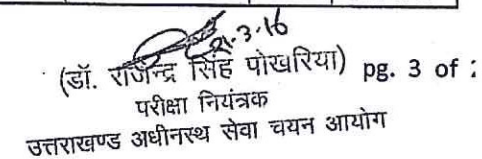 21.3.16
(डॉ. राजेन्द्र सिंह पोखरिया) pg. 3 of
परीक्षा नियंत्रक
उत्तराखण्ड अधीनस्थ सेवा चयन आयोग